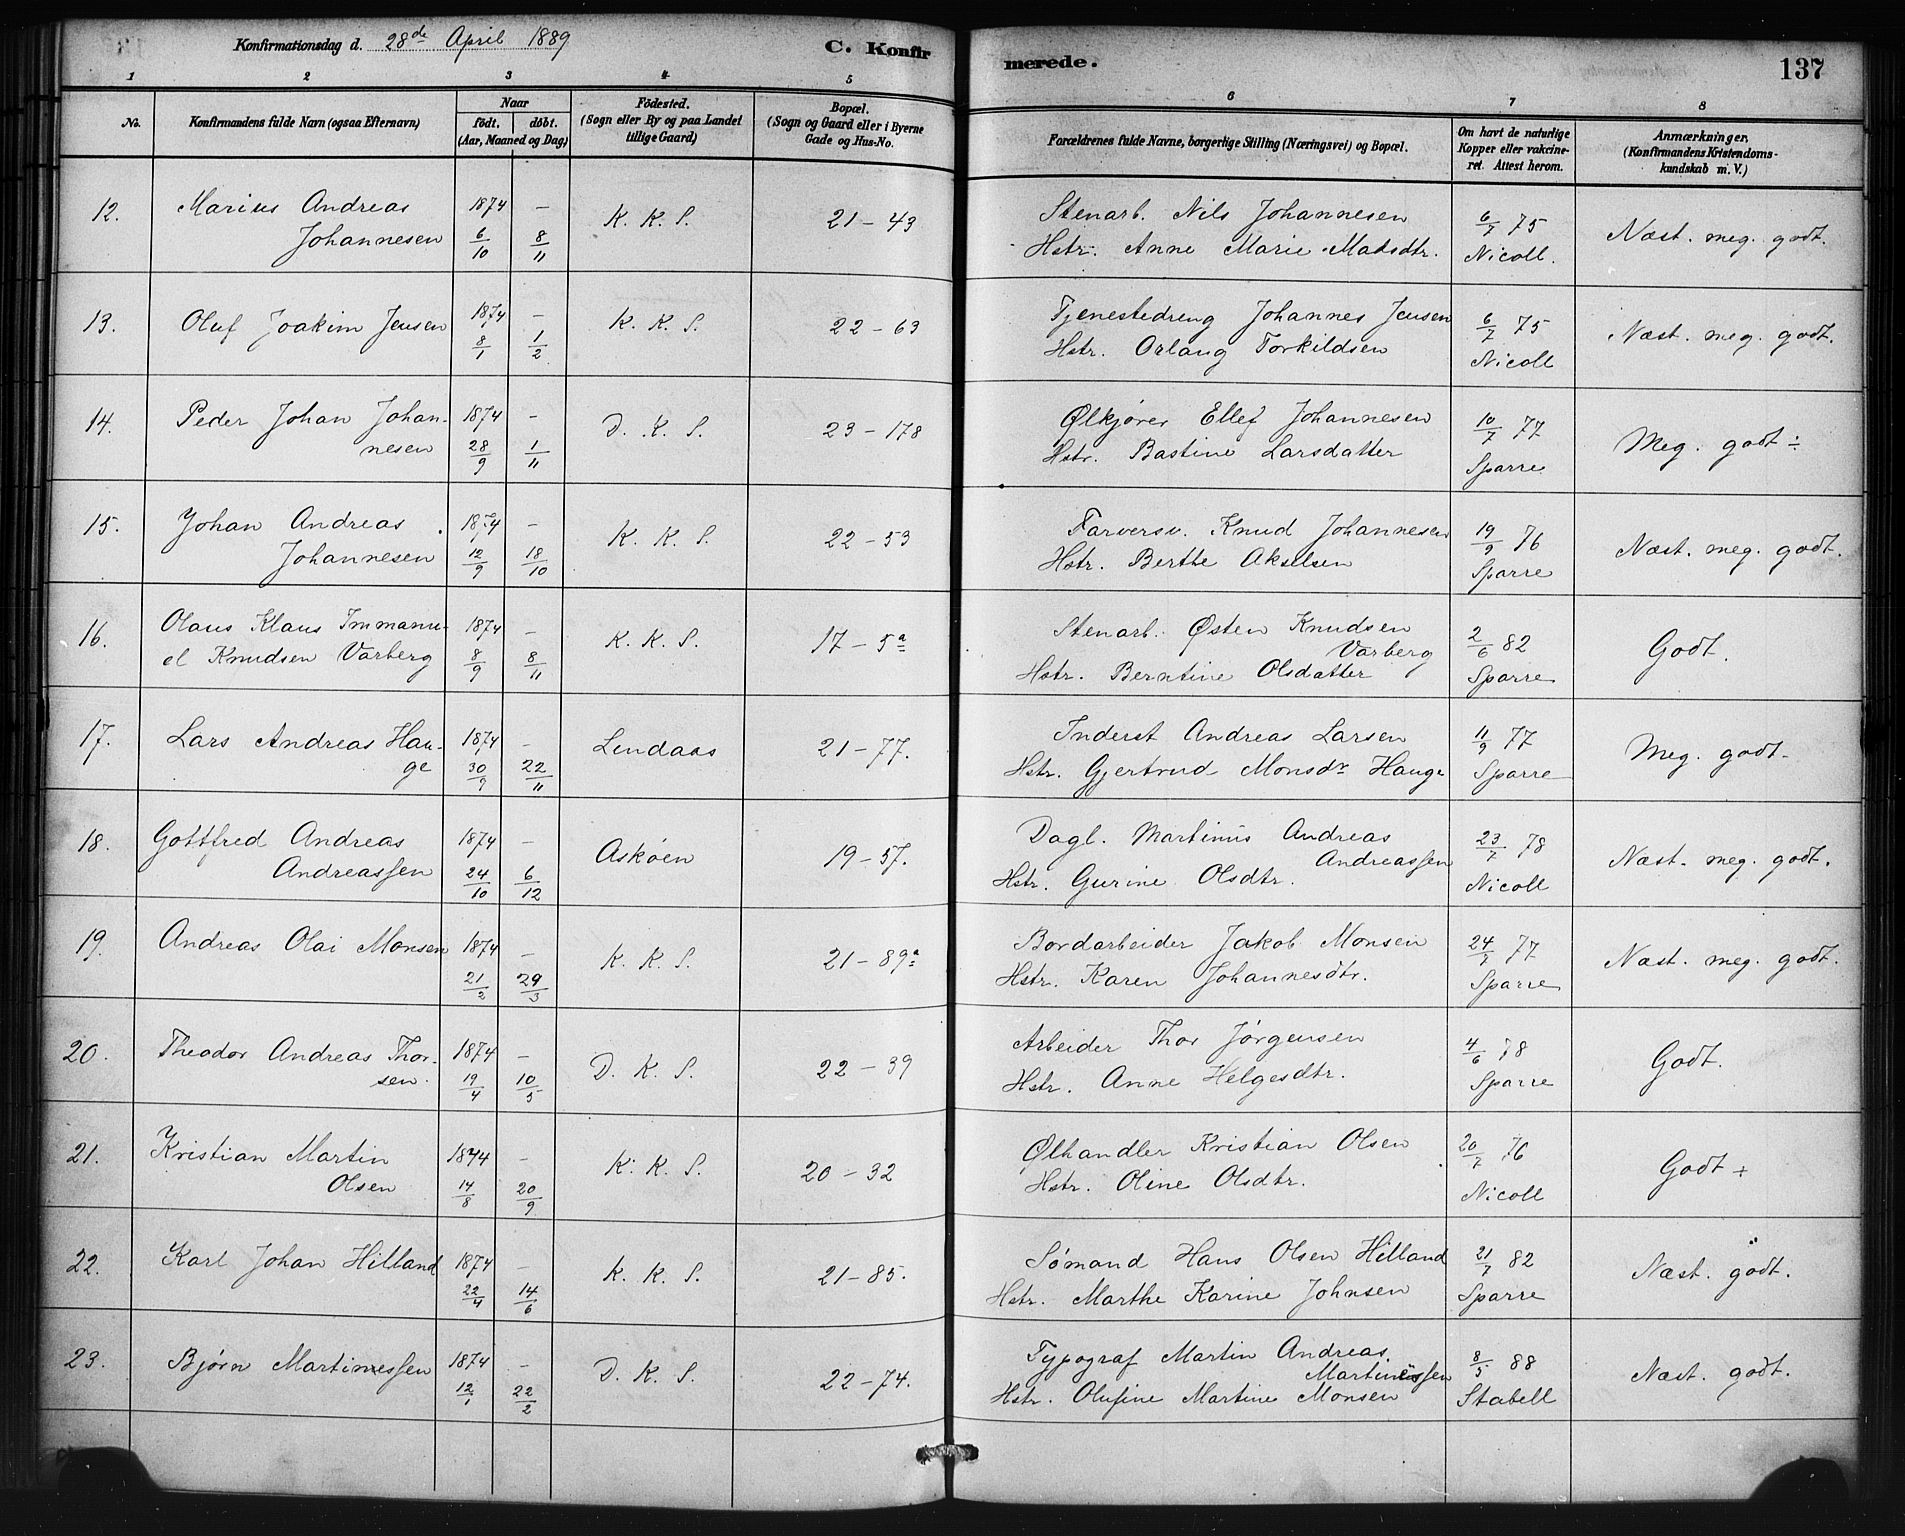 Konfirmationsdag d. 28de April 1889
C. Konfirmerede.
137
1 2 3 4 5 6 7 8
No.
Konfirmandens fulde Navn (ogsaa Efternavn)
Naar
födt. döbt.
(Aar, Maaned og Dag)
Födested.
(Sogn eller By og paa Landet
tillige Gaard)
Bopæl.
(Sogn og Gaard eller i Byerne
Gade og Hus-No.
Forældrenes fulde Navne, borgerlige Stilling (Næringsvei) og Bopæl.
Om havt de naturlige
Kopper eller vakcine-
ret. Attest herom.
Anmærkninger,
(Konfirmandens Kristendoms-
kundskab m. V.)
12. Marius Andreas 1874 – K. K. S. 21 – 43 Stenarb. Nils Johannesen 6/7 75 Næst. meg. godt.
Johannesen 6/10 8/11 Hstr. Anne Marie Madsdtr. Nicoll.
13. Oluf Joakim Jensen 1874 – K. K. S. 22 – 63 Tjenestedreng Johannes Jensen 6/7 75 Næst. meg. godt.
8/1 1/2 Hstr. Orlaug Torkildsen Nicoll
14. Peder Johan Johan- 1874 – D. K. S. 23 – 178 Ølkjører Ellef Johannesen 10/7 77 Meg. godt ÷
nesen 28/9 1/11 Hstr. Bastine Larsdatter Sparre
15. Johan Andreas 1874 – K. K. S. 22 – 53 Farversv. Knud Johannesen 19/9 76 Næst. meg. godt.
Johannesen 12/9 18/10 Hstr. Berthe Akselsen Sparre
16. Olaus Klaus Immanu- 1874 – K. K. S. 17 – 5a Stenarb. Østen Knudsen 2/6 82 Godt.
el Knudsen Varberg 8/9 8/11 Varberg
Hstr. Berntine Olsdatter Sparre
17. Lars Andreas Hau- 1874 – Lindaas 21 – 77. Inderst Andreas Larsen 11/9 77 Meg. godt.
ge 30/9 22/11 Hstr. Gjertrud Monsdr Hauge Sparre
18. Gottfred Andreas 1874 – Askøen 19 – 57. Dagl. Martinus Andreas 23/7 78 Næst. meg. godt.
Andreassen 24/10 6/12 Andreassen
Hstr. Gurine Olsdtr. Nicoll
19. Andreas Olai Monsen 1874 – K. K. S. 21 – 89a Bordarbeider Jakob Monsen 24/9 77 Næst. meg. godt.
21/2 29/3 Hstr. Karen Johannesdtr. Sparre
20. Theodor Andreas Thor- 1874 – D. K. S. 22 – 39 Arbeider Thor Jørgensen 4/6 78 Godt.
sen. 19/4 10/5 Hstr. Anne Helgesdtr. Sparre
21. Kristian Martin 1874 – K. K. S. 20 – 32 Ølhandler Kristian Olsen 20/7 76 Godt +
Olsen 14/8 20/9 Hstr. Oline Olsdtr. Nicoll
22. Karl Johan Hilland 1874 – K. K. S. 21 – 85. Sømand Hans Olsen Hilland 21/7 82 Næst. godt.
22/4 14/6 Hstr. Marthe Karine Johnsen Sparre
23. Bjørn Martinessen 1874 – D. K. S. 22 – 74. Typograf Martin Andreas 8/5 88 Næst. godt.
12/1 22/2 Martinessen
Hstr. Olufine Martine Monsen Stabell